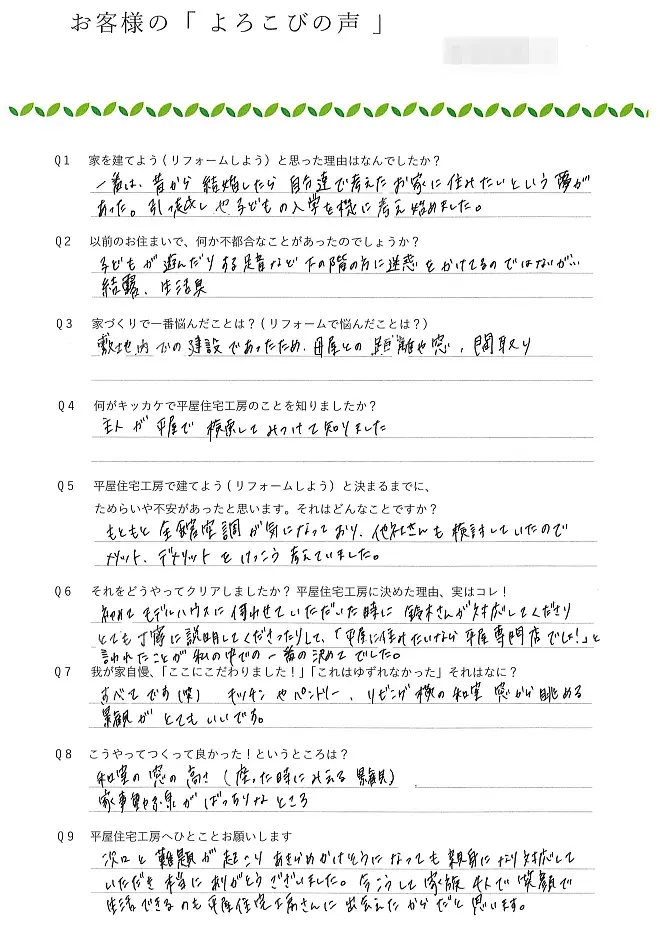 お客様の「 よろこびの声 」
Q1 家を建てよう（リフォームしよう）と思った理由はなんでしたか？
一番は、昔から 結婚したら 自分達で考えた お家に住みたいという 夢が
あった。引っ越しや子どもの入学を機に考え始めました。
Q2 以前のお住まいで、何か不都合なことがあったのでしょうか？
子どもが 遊んだり する足音など 下の階の方に迷惑 をかけてるのではないか…
結露、生活臭
Q3 家づくりで一番悩んだことは？（リフォームで悩んだことは？）
敷地内での建設であったため、母屋との 距離や窓、間取り
Q4 何がキッカケで平屋住宅工房のことを知りましたか？
主人が 平屋で 検索して みつけて知りました
Q5 平屋住宅工房で建てよう（リフォームしよう）と決まるまでに、
ためらいや不安があったと思います。それはどんなことですか？
もともと 全館空調が気になっており、他社さんも 検討していたので
メリット、デメリットを けっこう 考えていました。
Q6 それをどうやってクリアしましたか？ 平屋住宅工房に決めた理由、実はコレ！
初めて モデルハウスに 伺わせていただいた時に 鈴木さんが対応してくださり
とても丁寧に説明してくださったりして、「平屋に住みたいなら 平屋専門店でしょ！」と
言われたことが 私の中での 一番の決めてでした。
Q7 我が家自慢、「ここにこだわりました！」「これはゆずれなかった」それはなに？
すべてです（笑） キッチンやパントリー、リビング横の和室 窓から眺める
景観が とてもいいです。
Q8 こうやってつくって良かった！というところは？
和室の窓の高さ（座った時にみえる 景観）
家事動線がばっちりなところ
Q9 平屋住宅工房へひとことお願いします
次々と 難題が 起こり あきらめかけそうになっても 親身になり対応して
いただき 本当に ありがとうございました。今こうして 家族4人で 笑顔で
生活できるのも平屋住宅工房さんに 出会えたからだと思います。